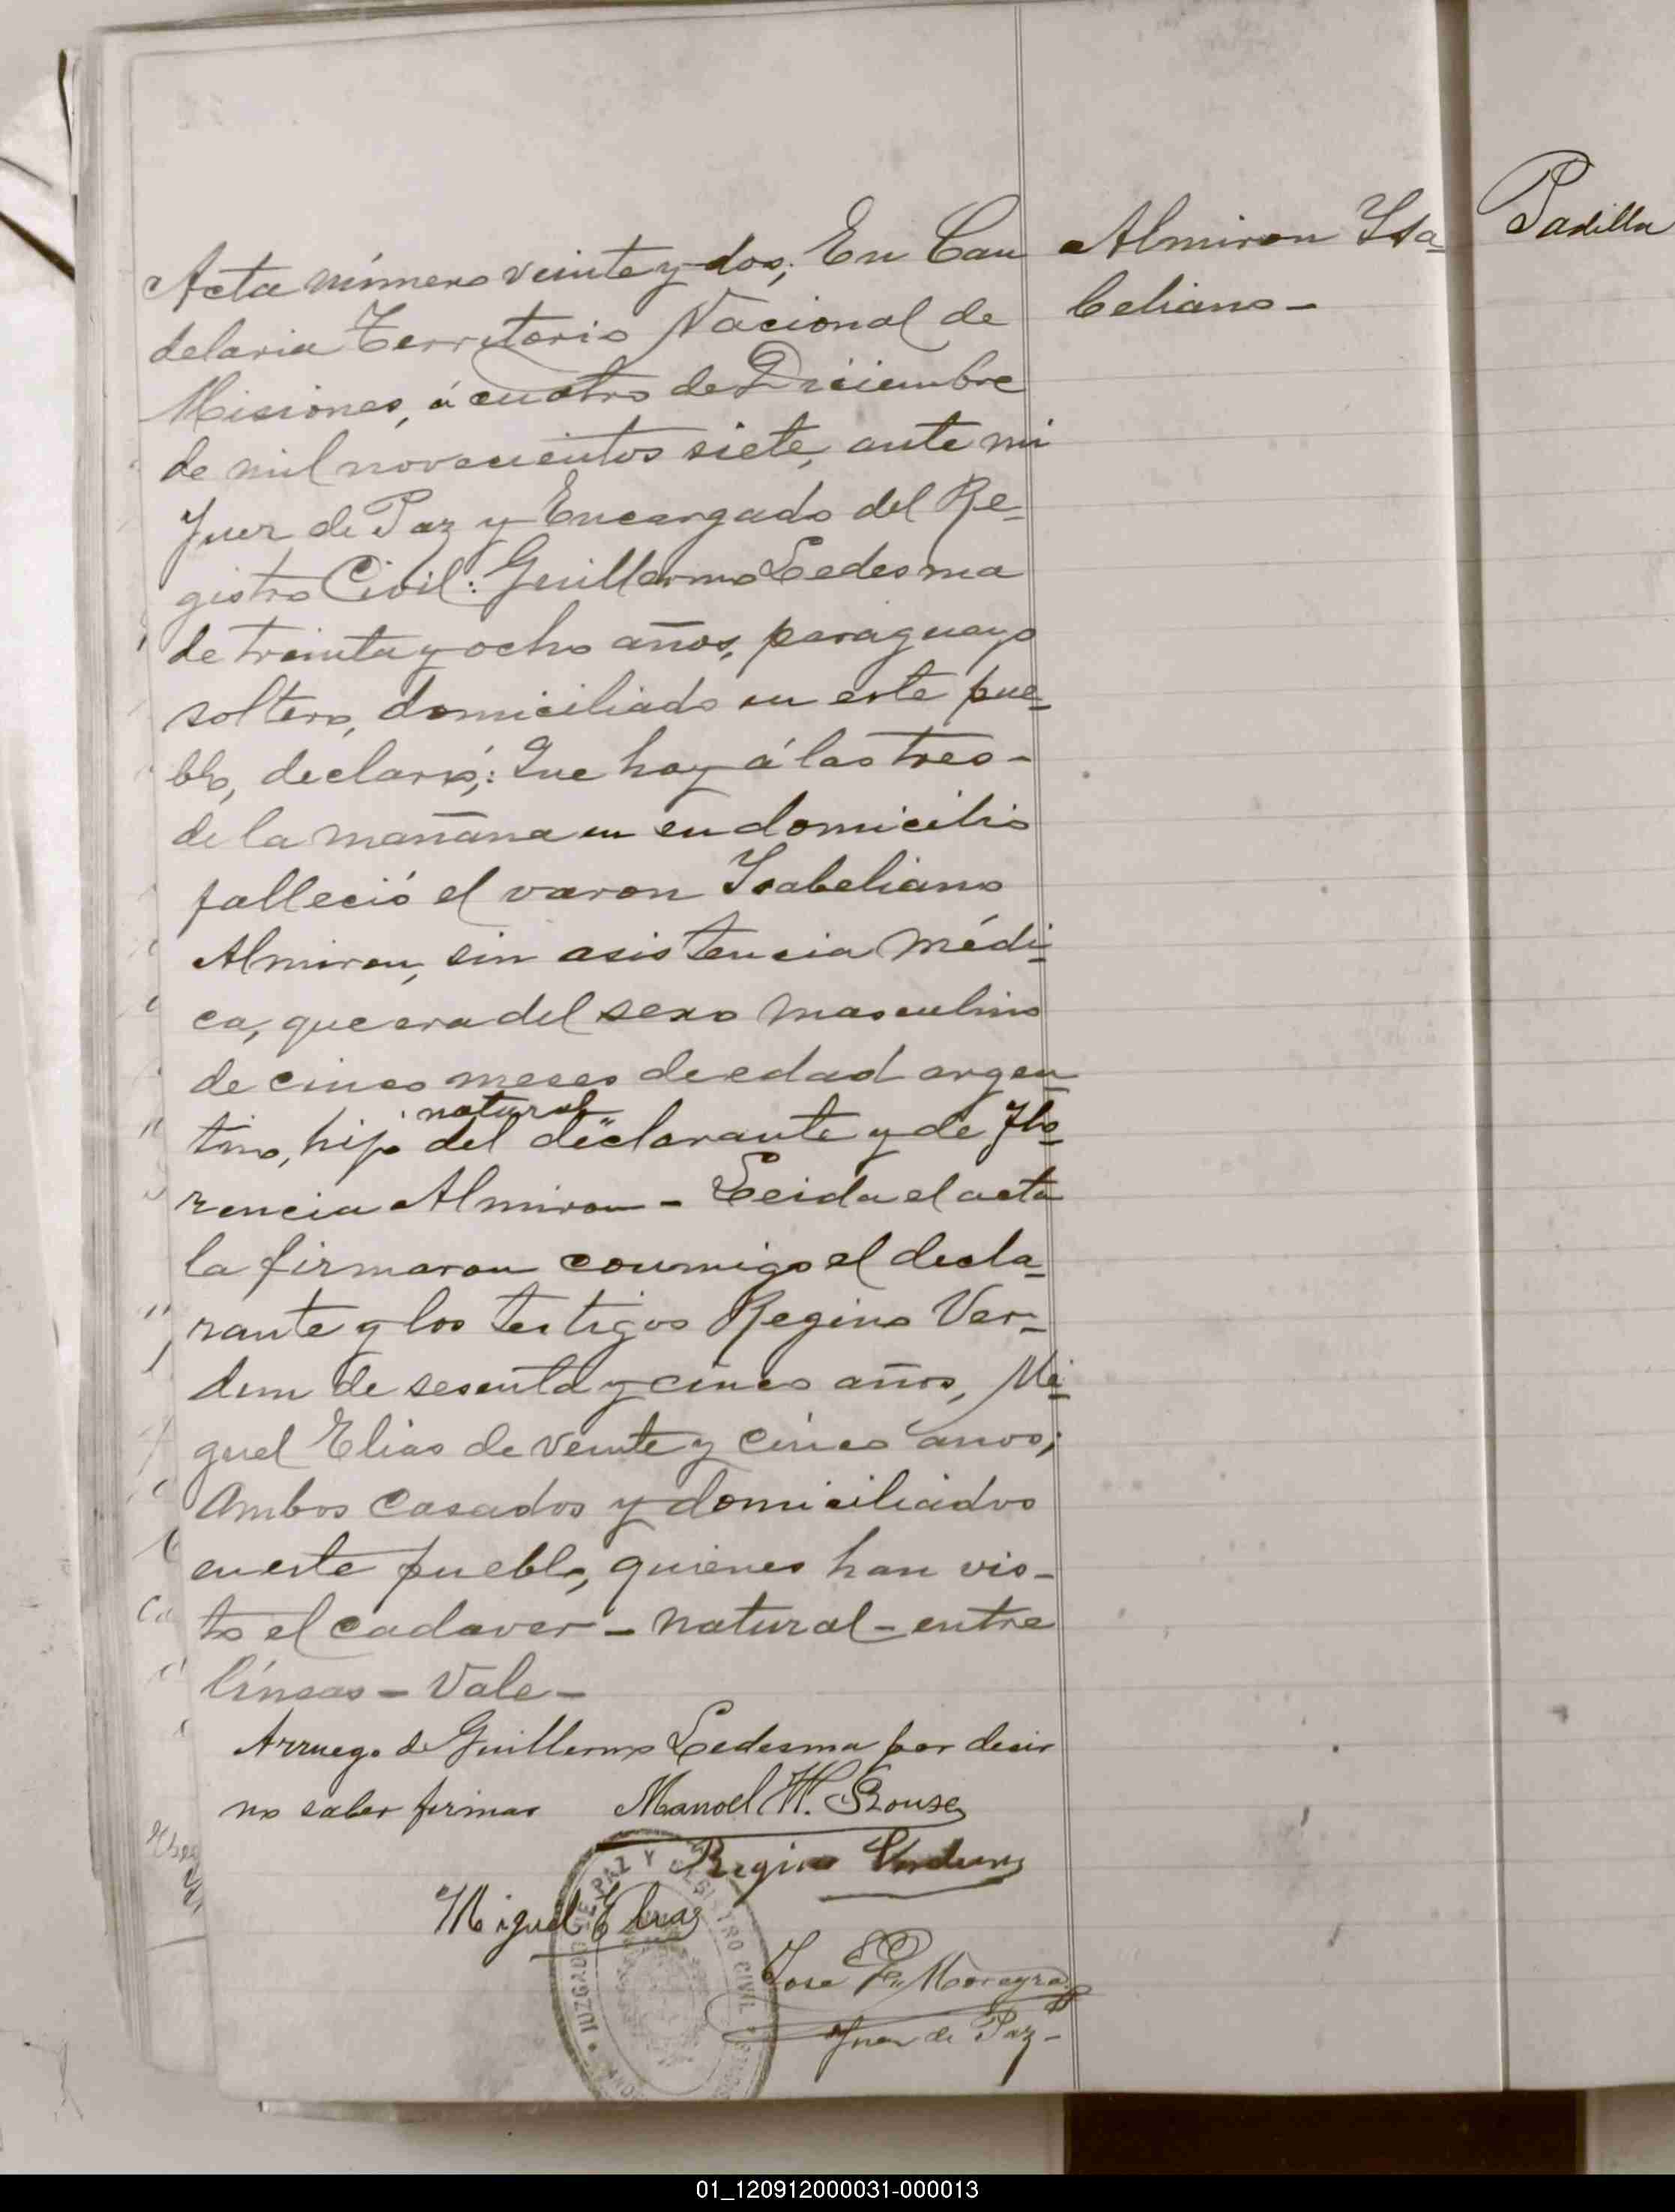 Acta número veinte y dos; En Can
delaria Territorio Nacional de
Misiones, á cuatro de Diciembre
de mil novecientos siete, ante mi
Juez de Paz y Encargado del Re-
gistro Civil: Guillermo Ledesma
de treinta y ocho años, paraguayo
soltero, domiciliado en este pue-
blo, declaró: Que hoy á las tres-
de la mañana en su domicilio
falleció el varon Isabeliano
Almiron, sin asistencia médi-
ca, que era del sexo masculino
de cinco meses de edad argen
natural
tino, hijo del declarante y de Flo-
rencia Almiron - Leida el acta
la firmaron conmigo el decla-
rante y los testigos Regino Ver-
dun de sesenta y cinco años, Mi-
guel Elias de veinte y cinco años;
Ambos casados y domiciliados
en este pueblo, quienes han vis-
to el cadaver - natural - entre
líneas - Vale -
Arruego de Guillermo Ledesma por decir
no saber firmar Manoel H.
Regino Verdun
Miguel Elias
Jose Moreyra
Juez de Paz -
JUZGADO DE PAZ Y REGISTRO CIVIL
Almiron Isa-
beliano -
Padilla
01_120912000031-000013